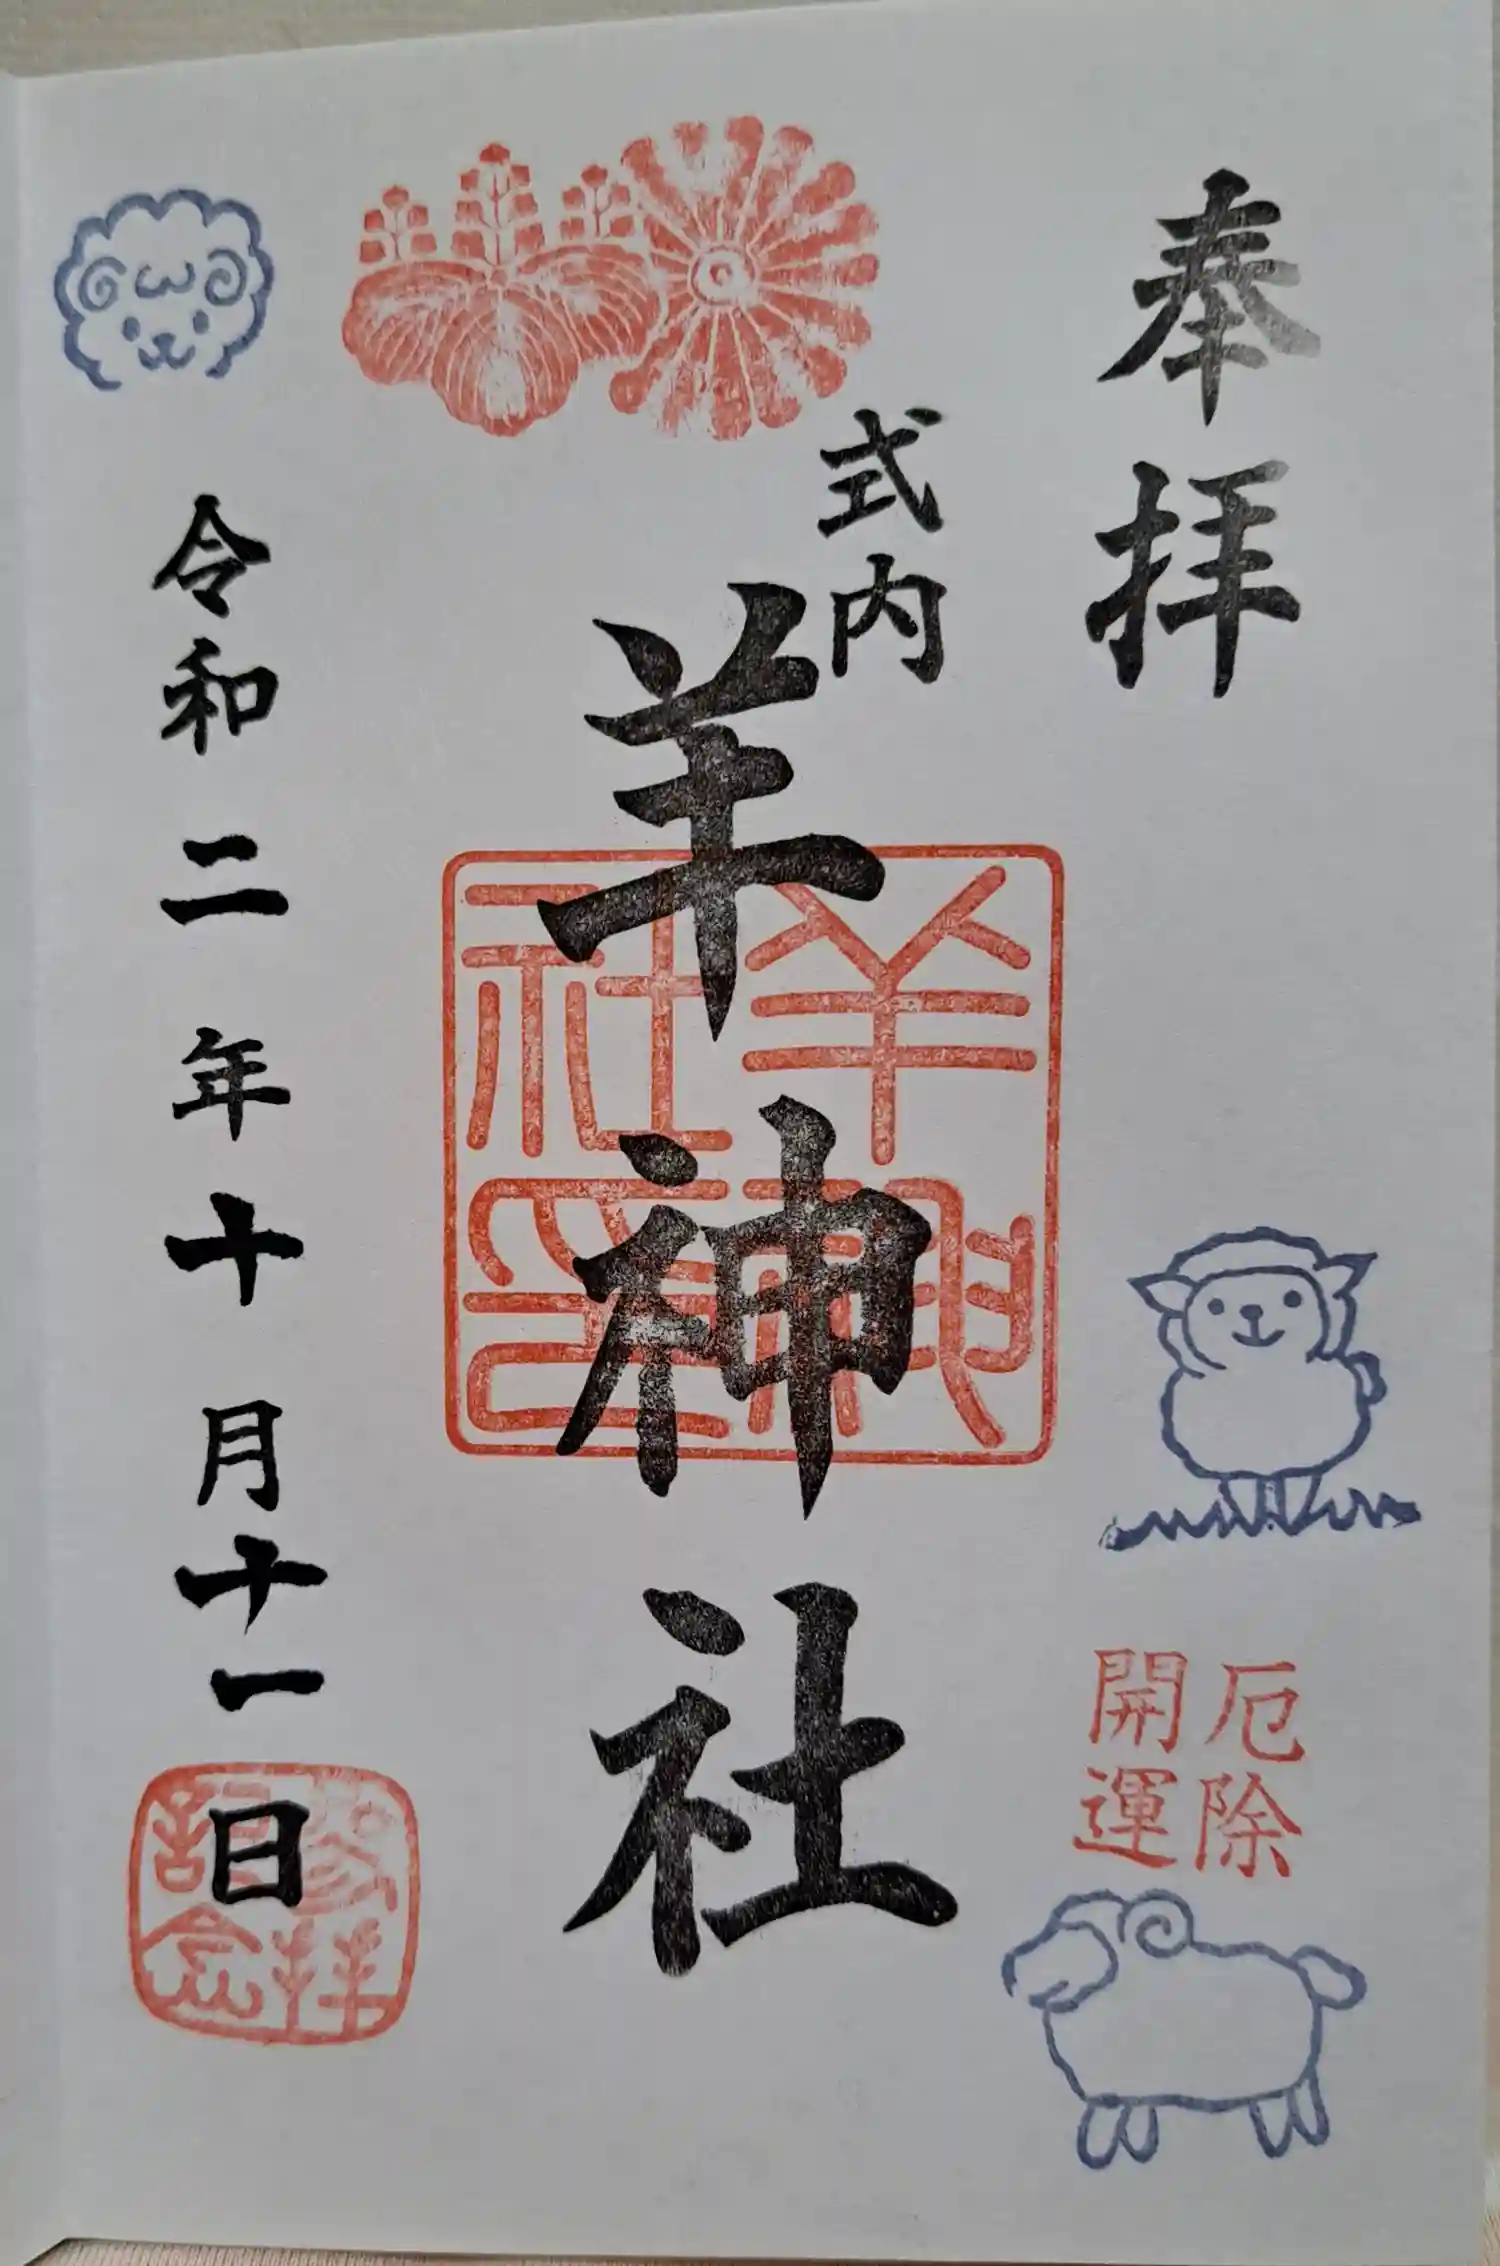 奉拝
式内
羊神社
羊神社印
厄除
開運
令和二年十月十一日
参拝
記念